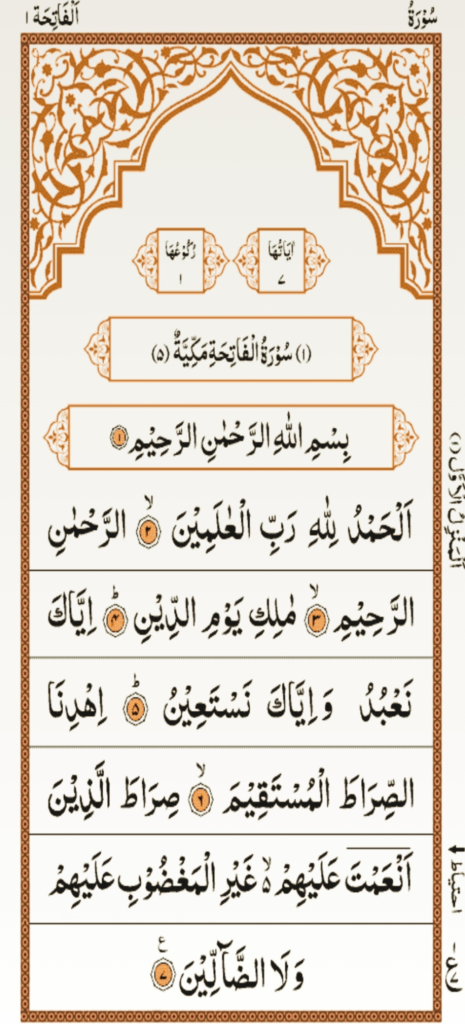 سُوْرَةُ
اَلْفَاتِحَة ١
اٰيَاتُهَا
٧
رُكُوْعُهَا
١
(١) سُوْرَةُ الْفَاتِحَةِ مَكِّيَّةٌ (٥)
بِسْمِ اللّٰهِ الرَّحْمٰنِ الرَّحِيْمِ ۝١
اَلْحَمْدُ لِلّٰهِ رَبِّ الْعٰلَمِيْنَ ۙ۝٢ الرَّحْمٰنِ
الرَّحِيْمِ ۙ۝٣ مٰلِكِ يَوْمِ الدِّيْنِ ؕ۝۴ اِيَّاكَ
نَعْبُدُ وَ اِيَّاكَ نَسْتَعِيْنُ ؕ۝۵ اِهْدِنَا
الصِّرَاطَ الْمُسْتَقِيْمَ ۙ۝٦ صِرَاطَ الَّذِيْنَ
اَنْعَمْتَ عَلَيْهِمْ ۙ۬ۦ غَيْرِ الْمَغْضُوْبِ عَلَيْهِمْ
وَ لَا الضَّآلِّيْنَ ۝٧ ع
اَلْمَنْزِلُ الْاَوَّلُ (١)
احتیاط